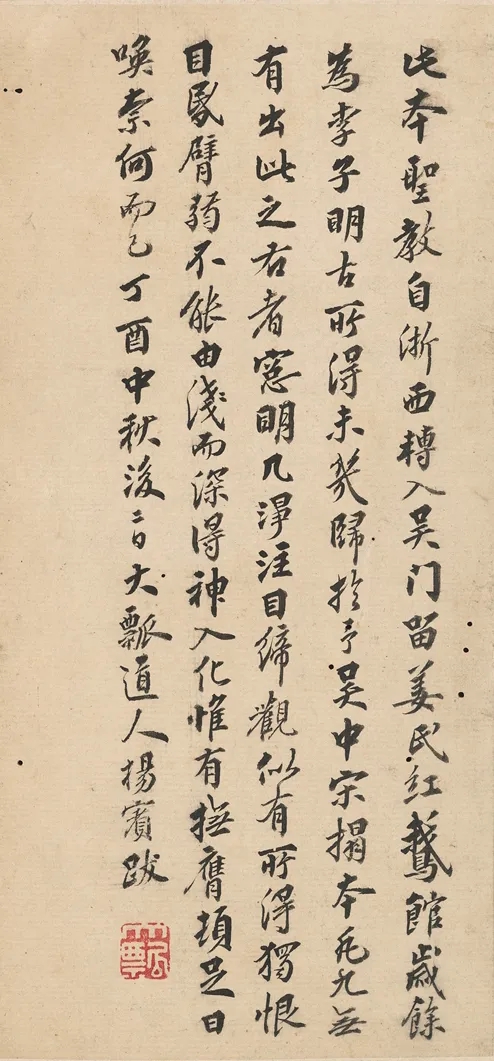 此本聖教自浙西轉入吳门留姜氏紅鵝館歲餘
為李子明古所得未幾歸於予吳中宋搨本凡九無
有出此之右者窓明几淨注目締觀似有所得獨恨
目昬臂弱不能由淺而深得神入化惟有撫膺頓足日
喚柰何而已丁酉中秋後二日大瓢道人楊賓跋
大瓢